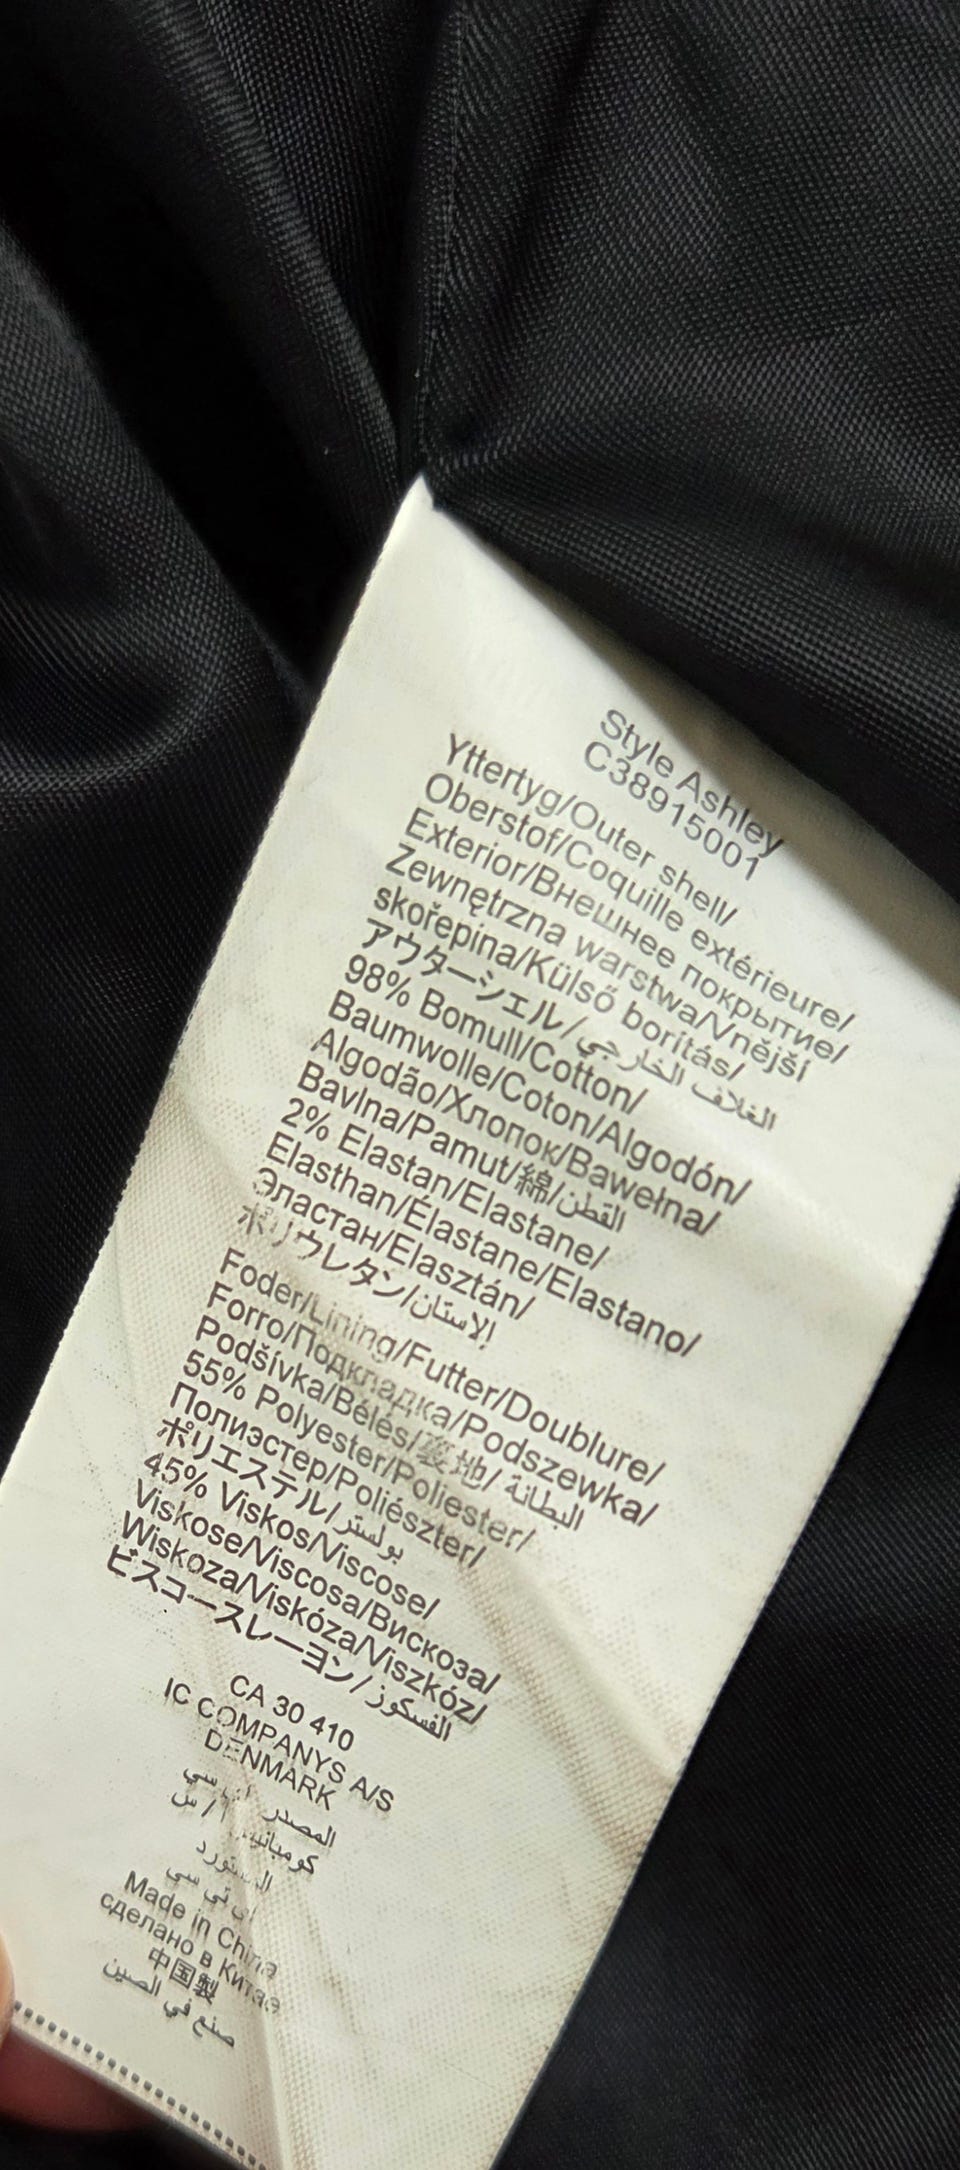 Style Ashley
C38915001
Yttertyg/Outer shell/
Oberstof/Coquille extérieure/
Exterior/Внешнее покрытие/
Zewnętrzna warstwa/Vnější
skořepina/Külső borítás/
アウターシェル/الغلاف الخارجي
98% Bomull/Cotton/
Baumwolle/Coton/Algodón/
Algodão/Хлопок/Bawełna/
Bavlna/Pamut/綿/القطن
2% Elastan/Elastane/
Elasthan/Élastane/Elastano/
Эластан/Elasztán/
ポリウレタン/الإستان
Foder/Lining/Futter/Doublure/
Forro/Подкладка/Podszewka/
Podšívka/Bélés/裏地/البطانة
55% Polyester/Poliester/
Полиэстер/Poliészter/
ポリエステル/بولستر
45% Viskos/Viscose/
Viskose/Viscosa/Вискоза/
Wiskoza/Viskóza/Viszkóz/
ビスコースレーヨン/الفسكوز
CA 30 410
IC COMPANYS A/S
DENMARK
المصدر سي
كومبانيس ا/س
سي
Made in China
сделано в Китае
中国製
صنع في الصين